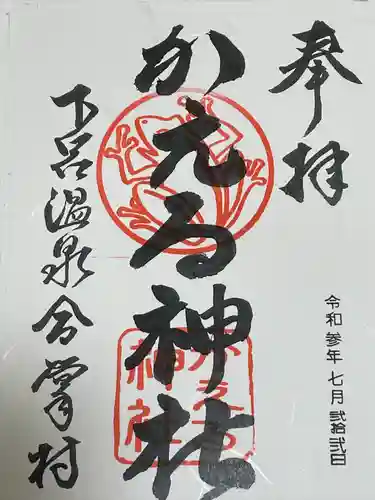 奉拝
令和参年七月弐拾弐日
かえる神社
かえる神社
下呂温泉合掌村